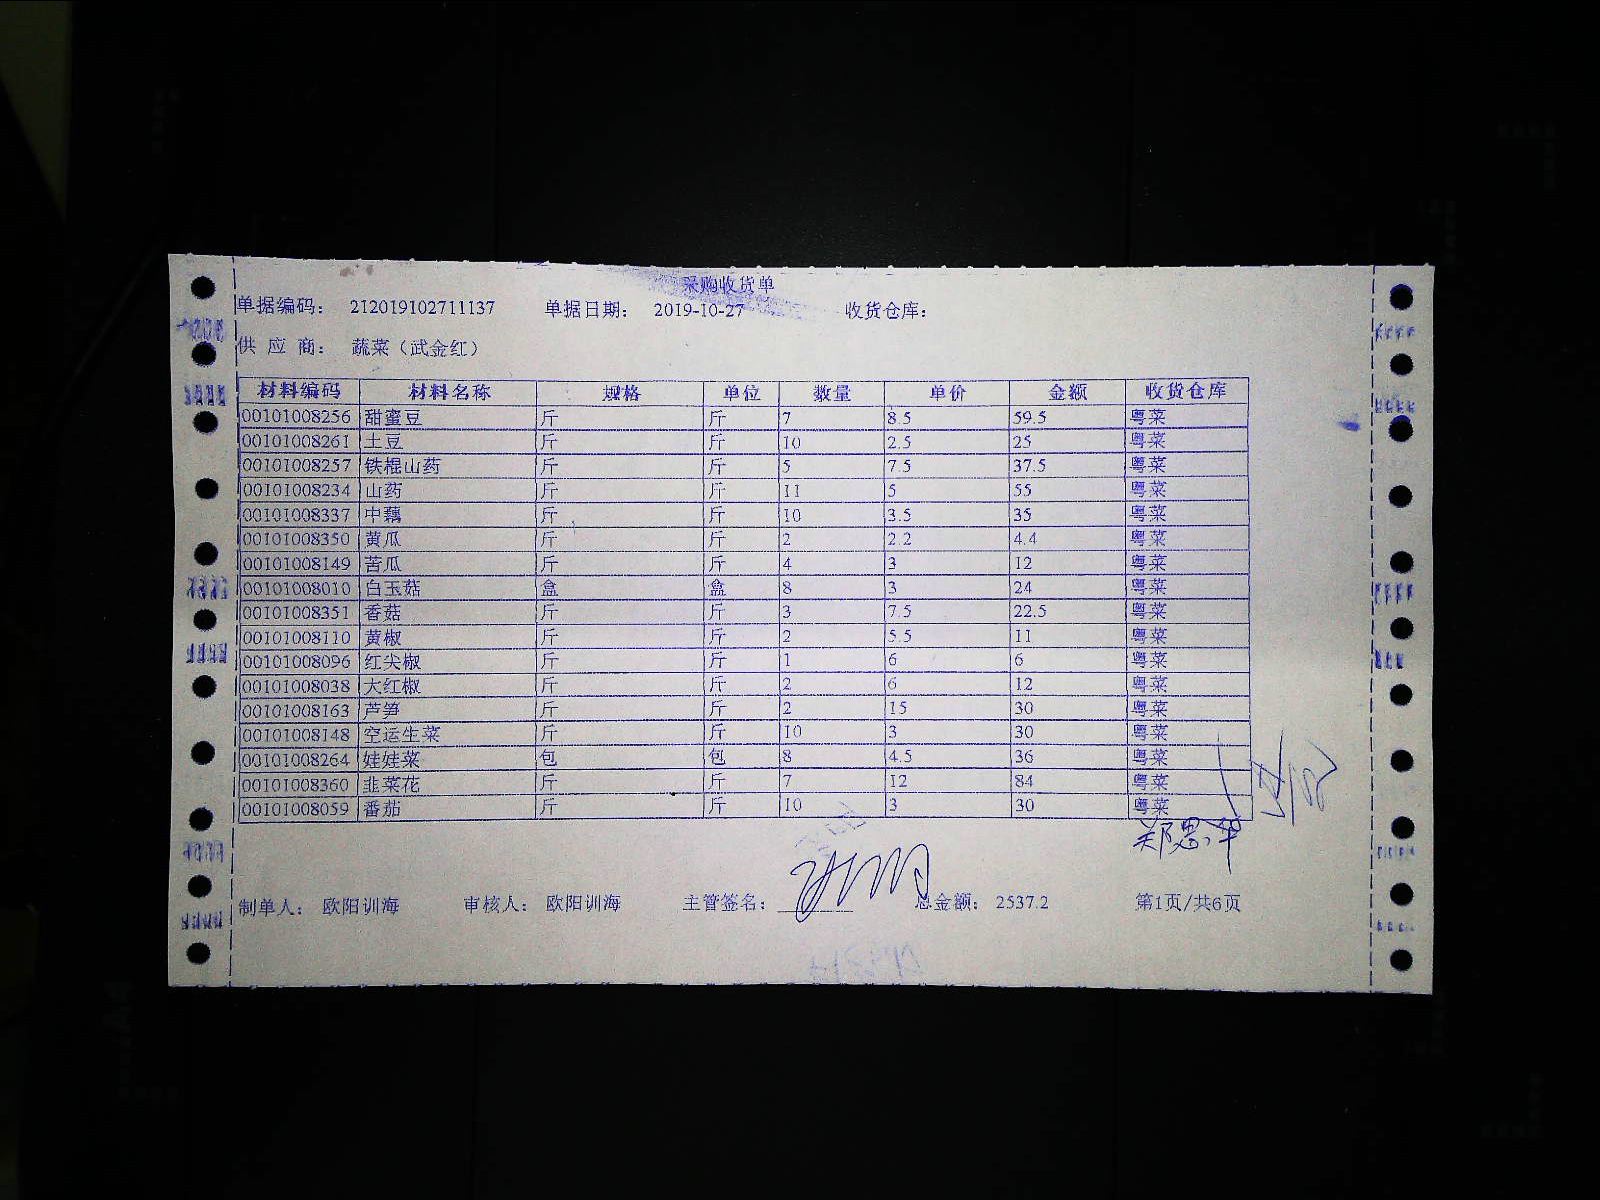 采购收货单
单据编码： 212019102711137 单据日期： 2019-10-27 收货仓库：
供 应 商： 蔬菜（武金红）
材料编码 材料名称 规格 单位 数量 单价 金额 收货仓库
00101008256 甜蜜豆 斤 斤 7 8.5 59.5 粤菜
00101008261 土豆 斤 斤 10 2.5 25 粤菜
00101008257 铁棍山药 斤 斤 5 7.5 37.5 粤菜
00101008234 山药 斤 斤 11 5 55 粤菜
00101008337 中藕 斤 斤 10 3.5 35 粤菜
00101008350 黄瓜 斤 斤 2 2.2 4.4 粤菜
00101008149 苦瓜 斤 斤 4 3 12 粤菜
00101008010 白玉菇 盒 盒 8 3 24 粤菜
00101008351 香菇 斤 斤 3 7.5 22.5 粤菜
00101008110 黄椒 斤 斤 2 5.5 11 粤菜
00101008096 红尖椒 斤 斤 1 6 6 粤菜
00101008038 大红椒 斤 斤 2 6 12 粤菜
00101008163 芦笋 斤 斤 2 15 30 粤菜
00101008148 空运生菜 斤 斤 10 3 30 粤菜
00101008264 娃娃菜 包 包 8 4.5 36 粤菜
00101008360 韭菜花 斤 斤 7 12 84 粤菜
00101008059 番茄 斤 斤 10 3 30 粤菜
郑思华
制单人： 欧阳训海 审核人： 欧阳训海 主管签名： 总金额： 2537.2 第1页/共6页